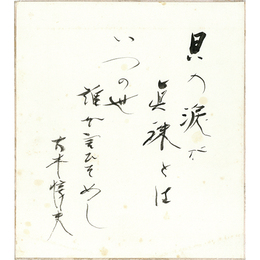 貝の涙が
真珠とは
いつの世
誰が言ひそめし
大木惇夫